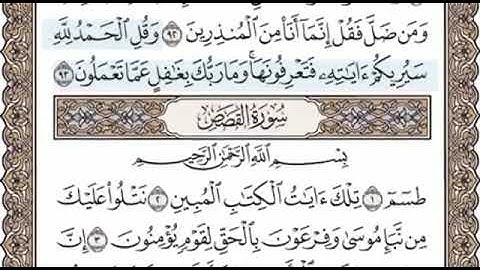 وَمَن ضَلَّ فَقُلْ إِنَّمَآ أَنَا۠ مِنَ ٱلْمُنذِرِينَ ٩٢ وَقُلِ ٱلْحَمْدُ لِلَّهِ
سَيُرِيكُمْ ءَايَٰتِهِۦ فَتَعْرِفُونَهَا ۚ وَمَا رَبُّكَ بِغَٰفِلٍ عَمَّا تَعْمَلُونَ ٩٣
سُورَةُ القَصَصِ
بِسْمِ ٱللَّهِ ٱلرَّحْمَٰنِ ٱلرَّحِيمِ
طسٓمٓ ١ تِلْكَ ءَايَٰتُ ٱلْكِتَٰبِ ٱلْمُبِينِ ٢ نَتْلُوا۟ عَلَيْكَ
مِن نَّبَإِ مُوسَىٰ وَفِرْعَوْنَ بِٱلْحَقِّ لِقَوْمٍ يُؤْمِنُونَ ٣ إِنَّ